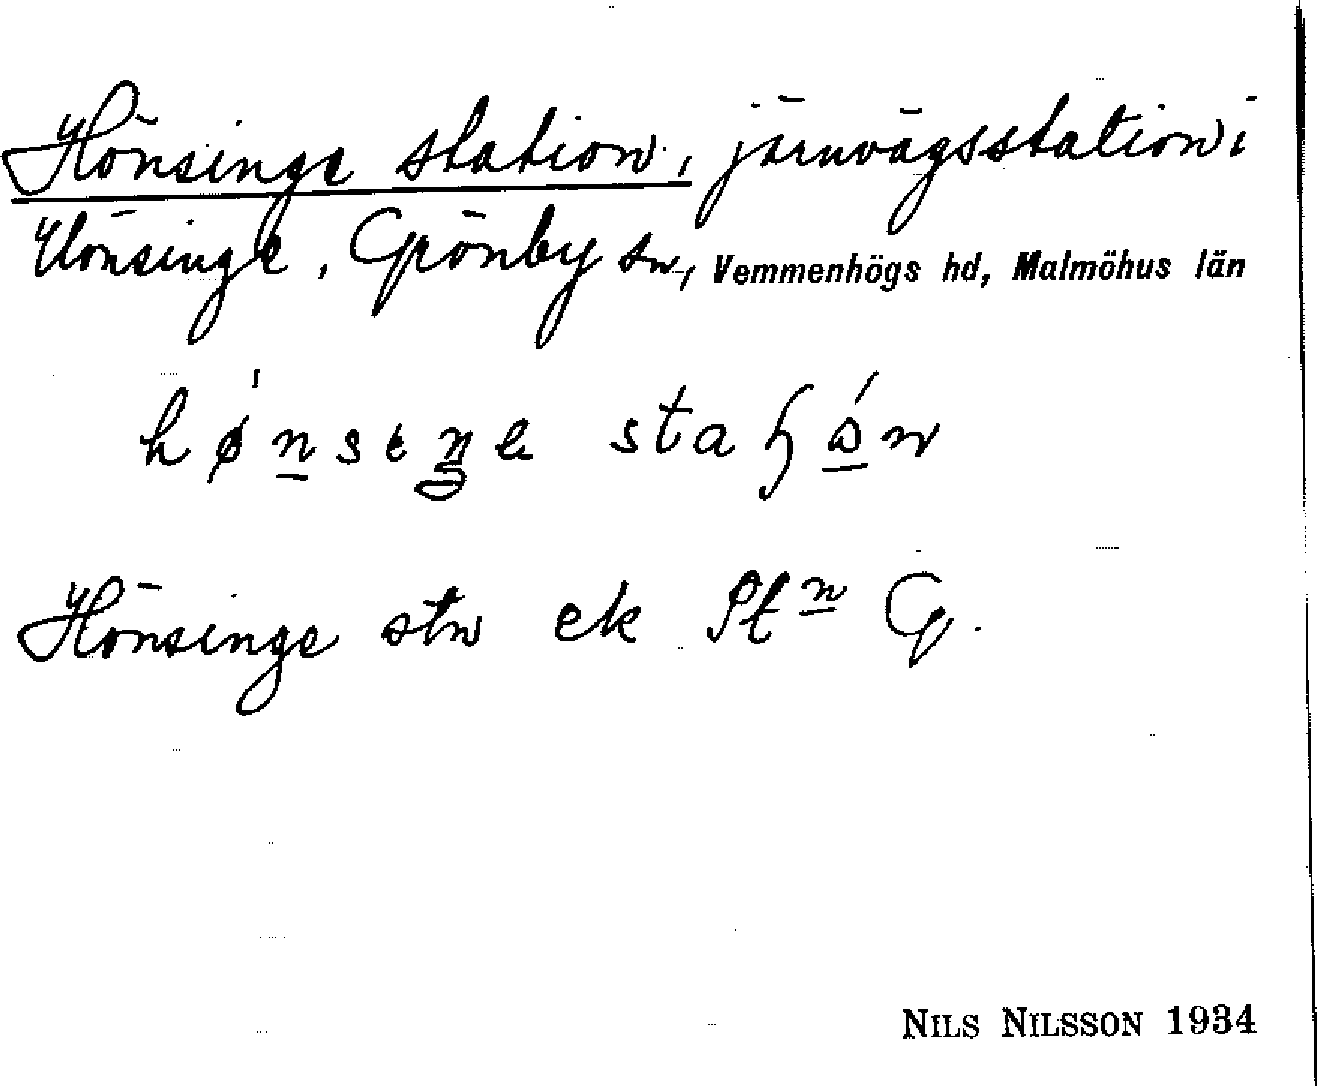 Hönsinge station, järnvägsstation i
Hönsinge, Grönby sn, Vemmenhögs hd, Malmöhus län
Hönsinge stn ek
NILS NILSSON 1934